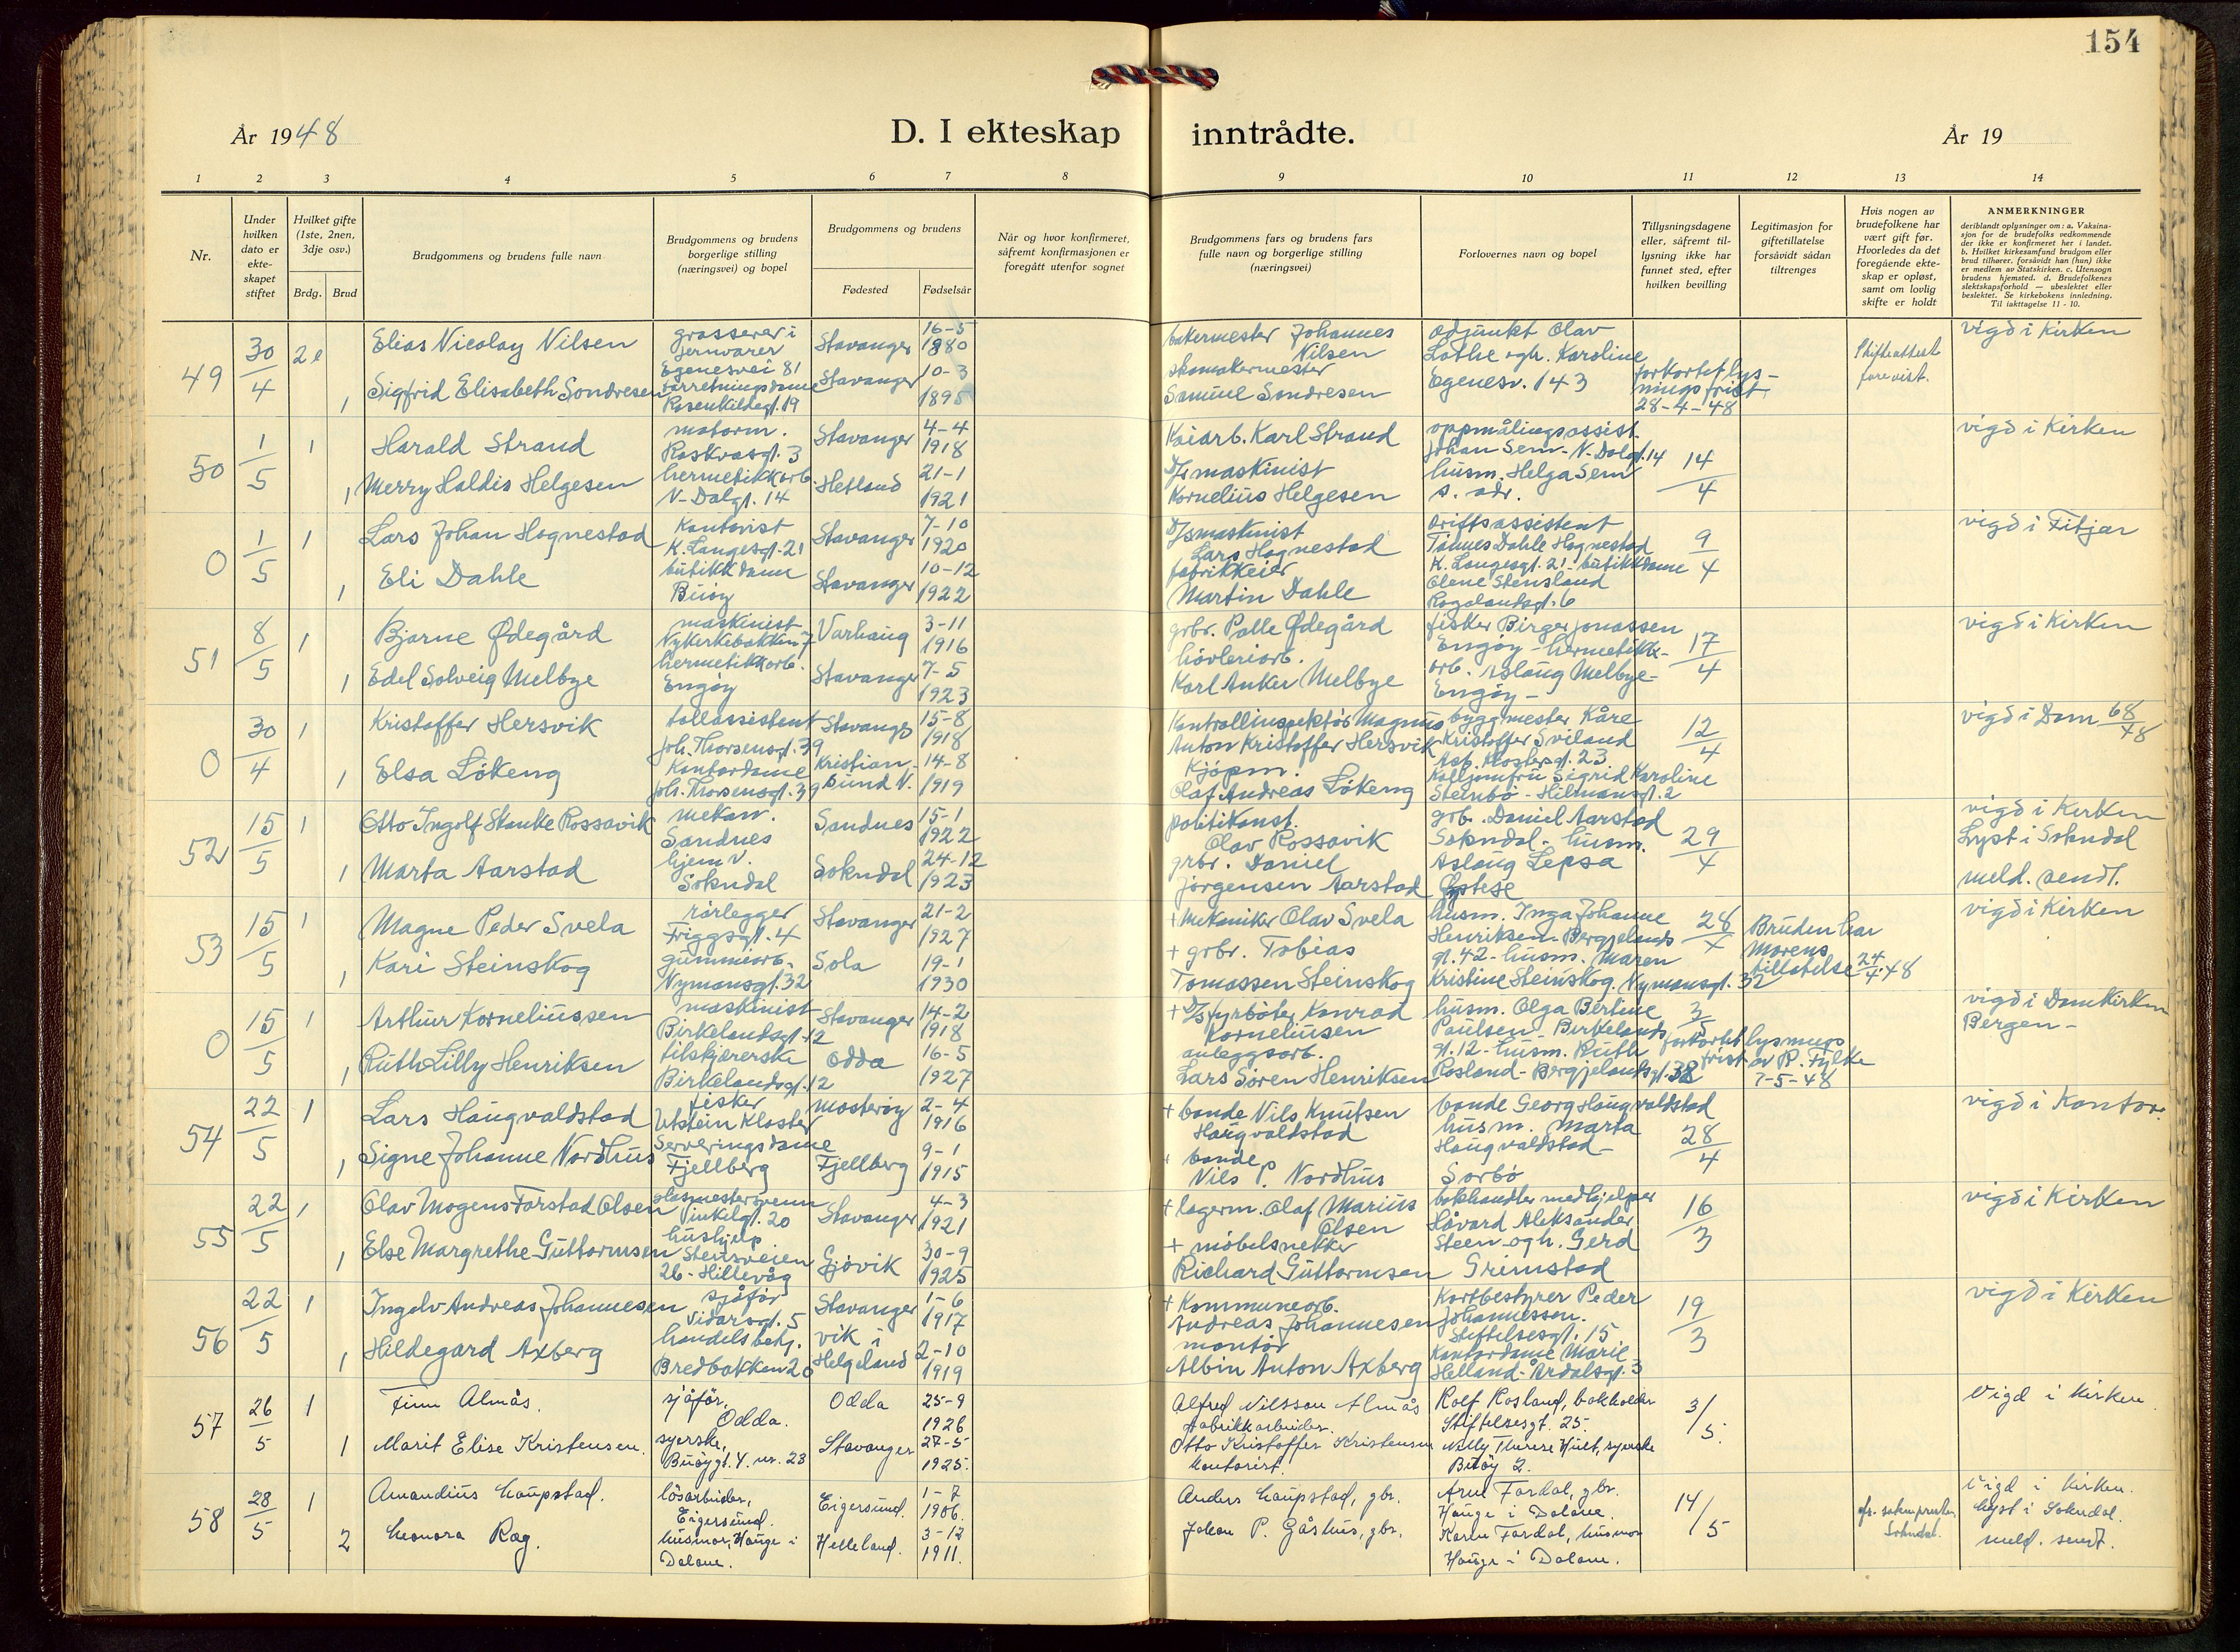 154
År 1948
D. I ekteskap inntrådte.
År 19
1 2 3 4 5 6 7 8 9 10 11 12 13 14
Nr.
Under hvilken dato er ekte-skapet stiftet
Hvilket gifte (1ste, 2nen, 3dje osv.)
Brdg. Brud
Brudgommens og brudens fulle navn
Brudgommens og brudens borgerlige stilling (næringsvei) og bopel
Brudgommens og brudens
Fødested
Fødselsår
Når og hvor konfirmeret, såfremt konfirmasjonen er foregått utenfor sognet
Brudgommens fars og brudens fars fulle navn og borgerlige stilling (næringsvei)
Forlovernes navn og bopel
Tillysningsdagene eller, såfremt til-lysning ikke har funnet sted, efter hvilken bevilling
Legitimasjon for giftetillatelse forsåvidt sådan tiltrenges
Hvis nogen av brudefolkene har vært gift før. Hvorledes da det foregående ekte-skap er opløst, samt om lovlig skifte er holdt
ANMERKNINGER
deriblandt oplysninger om: a. Vaksina-sjon for de brudefolks vedkommende der ikke er konfirmeret her i landet. b. Hvilket kirkesamfund brudgom eller brud tilhører, forsåvidt han (hun) ikke er medlem av Statskirken. c. Utensogn brudens hjemsted. d. Brudefolkenes slektskapsforhold — ubeslektet eller beslektet. Se kirkebokens innledning. Til iakttagelse 11 - 10.
49 30/4 2e Elias Nicolay Nilsen grosserer i jernvarer Egenesvei 81 Stavanger 16-5 1880 bakermester Johannes Nilsen adjunkt Olav Lothe ogh. Karoline Egenesv. 143 forkortet lys-nings frist 28-4-48 Skifteattest forevist. vigd i Kirken
1 Sigfrid Elisabeth Sondresen forretningsdame Rosenkildegt. 19 Stavanger 10-3 1895 skomakermester Samuel Sondresen
50 1/5 1 Harald Strand matorm. Roskvasgt. 3 Stavanger 4-4 1918 Kaiarb. Karl Strand oppmålingsassist. Johan Sem - N. Dalgt. 14 husm. Helga Sem s. adr. 14/4 vigd i Kirken
1 Merry Haldis Helgesen hermetikkarb. N-Dalgt. 14 Hetland 21-1 1921 D/s maskinist Kornelius Helgesen
0 1/5 1 Lars Johan Hognestad Kontorist K. Langesgt. 21 Stavanger 7-10 1920 D/s maskinist Lars Hognestad driftsassistent Tønnes Dahle Hognestad K. Langesgt. 21 - butikkdame Olene Stensland Rogalandsgt. 6 9/4 vigd i Fitjar
1 Eli Dahle butikkdame Buøy Stavanger 10-12 1922 fabrikkeier Martin Dahle
51 8/5 1 Bjarne Ødegård maskinist Nykerkebakken 7 Varhaug 3-11 1916 grbr. Palle Ødegård fisker Birger Jonassen Engøy - hermetikk-arb. Aslaug Melbye - Engøy - 17/4 vigd i Kirken
1 Edel Solveig Melbye hermetikkarb. Engøy Stavanger 7-5 1923 høvleriarb. Karl Anker Melbye
0 30/4 1 Kristoffer Hersvik tollassistent Joh. Thorsensgt. 39 Stavanger 15-8 1918 Kontrollinspektør Magnus Anton Kristoffer Hersvik byggmester Kåre Kristoffer Sviland Asb. Klostersgt. 23 Sigrid Karoline Steinbø - Hilmansgt. 2 12/4 vigd i Dom 68/48
1 Elsa Løkeng Kontordame Joh. Thorsensgt. 39 Kristian-sund N. 14-8 1919 Kjøpm. Olaf Andreas Løkeng
52 15/5 1 Otto Ingolf Stanke Rossavik mekan. Sandnes Sandnes 15-1 1922 politikonst. Olav Rossavik grb. Daniel Aarstad Sokndal - husm. Aslaug Lepsa Øystese 29/4 vigd i Kirken Lyst i Sokndal meld. sendt.
1 Marta Aarstad hjem v. Sokndal Sokndal 24-12 1923 grbr. Daniel Jørgensen Aarstad
53 15/5 1 Magne Peder Svela rørlegger Friggsgt. 4 Stavanger 21-2 1927 + Mekaniker Olav Svela husm. Inga Johanne Henriksen - Bergjelands gt. 42 - husm. Maren Kristine Steinskog. Nymansgt. 32 28/4 Bruden har Morens tillatelse 24/4.48 vigd i Kirken
1 Kari Steinskog gummiarb. Nymansgt. 32 Sola 19-1 1930 + grbr. Tobias Tomassen Steinskog
0 15/5 1 Arthur Korneliussen maskinist Birkelandsgt. 12 Stavanger 14-2 1918 + D/s fyrbøter Konrad Korneliusen husm. Olga Bertine Paulsen - Birkelands gt. 12 - husm. Ruth Rosland - Bergjelandsgt. 38 3/5 forkortet lysnings frist av R. Fylke 7-5-48 vigd i Domkirken Bergen -
1 Ruth Lilly Henriksen tilskjærerske Birkelandsgt. 12 Odda 16-5 1927 anleggsarb. Lars Søren Henriksen
54 22/5 1 Lars Haugvaldstad fisker Utstein Kloster Mosterøy 2-4 1916 + bonde Nils Knutsen Haugvaldstad bonde Georg Haugvaldstad husm. Marta Haugvaldstad - Sørbø 28/4 vigd i Kontor.
1 Signe Johanne Nordhus Serveringsdame Fjellberg Fjellberg 9-1 1915 + bonde Nils P. Nordhus
55 22/5 1 Olav Mogens Farstad Olsen glasmestersvenn Vinkelgt. 20 Stavanger 4-3 1921 + lagerm. Olaf Marius Olsen bokhandler medhjelper Håvard Aleksander Steen ogh. Gerd Grimstad 16/3 vigd i Kirken
1 Else Margrethe Guttormsen hushjelp Stensveien 26 - Hillevåg Gjøvik 30-9 1925 + møbelsnekker Richard Guttormsen
56 22/5 1 Ingolv Andreas Johannesen sjåfør Vidarsgt. 5 Stavanger 1-6 1917 + Kommunearb. Andreas Johannesen Kortbestyrer Peder Johannessen. Stiftelsesgt. 15 Kontordame Marie Helland - Årdalsgt. 3 19/3 vigd i Kirken
1 Hildegard Axberg handelsbetj. Bredbakken 20 vik i Helgeland 2-10 1919 montør Albin Anton Axberg
57 26/5 1 Finn Almås. sjåfør, Odda. Odda 25-9 1926 Alfred Nilsson Almås fabrikkarbeider. Rolf Rosland, bokholder Stiftelsesgt. 25. 3/5. Vigd i kirken.
1 Marit Elise Kristensen. syerske, Buøygt. 4. nr. 23 Stavanger 27-5 1925. Otto Kristoffer Kristensen kontorist. Nelly Therese Hult, syerske Buøy 2.
58 28/5 1 Amandius Haupstad. løsarbeider, Eigersund. Eigersund. 1-7 1906. Anders Haupstad, gbr. Arne Fardal, gbr. Hauge i Dalane. 14/5 Sokndal. Vigd i kirken. Lyst i Sokndal. meld. sendt.
2 Leonora Rag. husmor, Hauge i Dalane. Helleland. 3-12 1911. Johan P. Gåshus, gbr. Karen Fardal, husmor Hauge i Dalane.